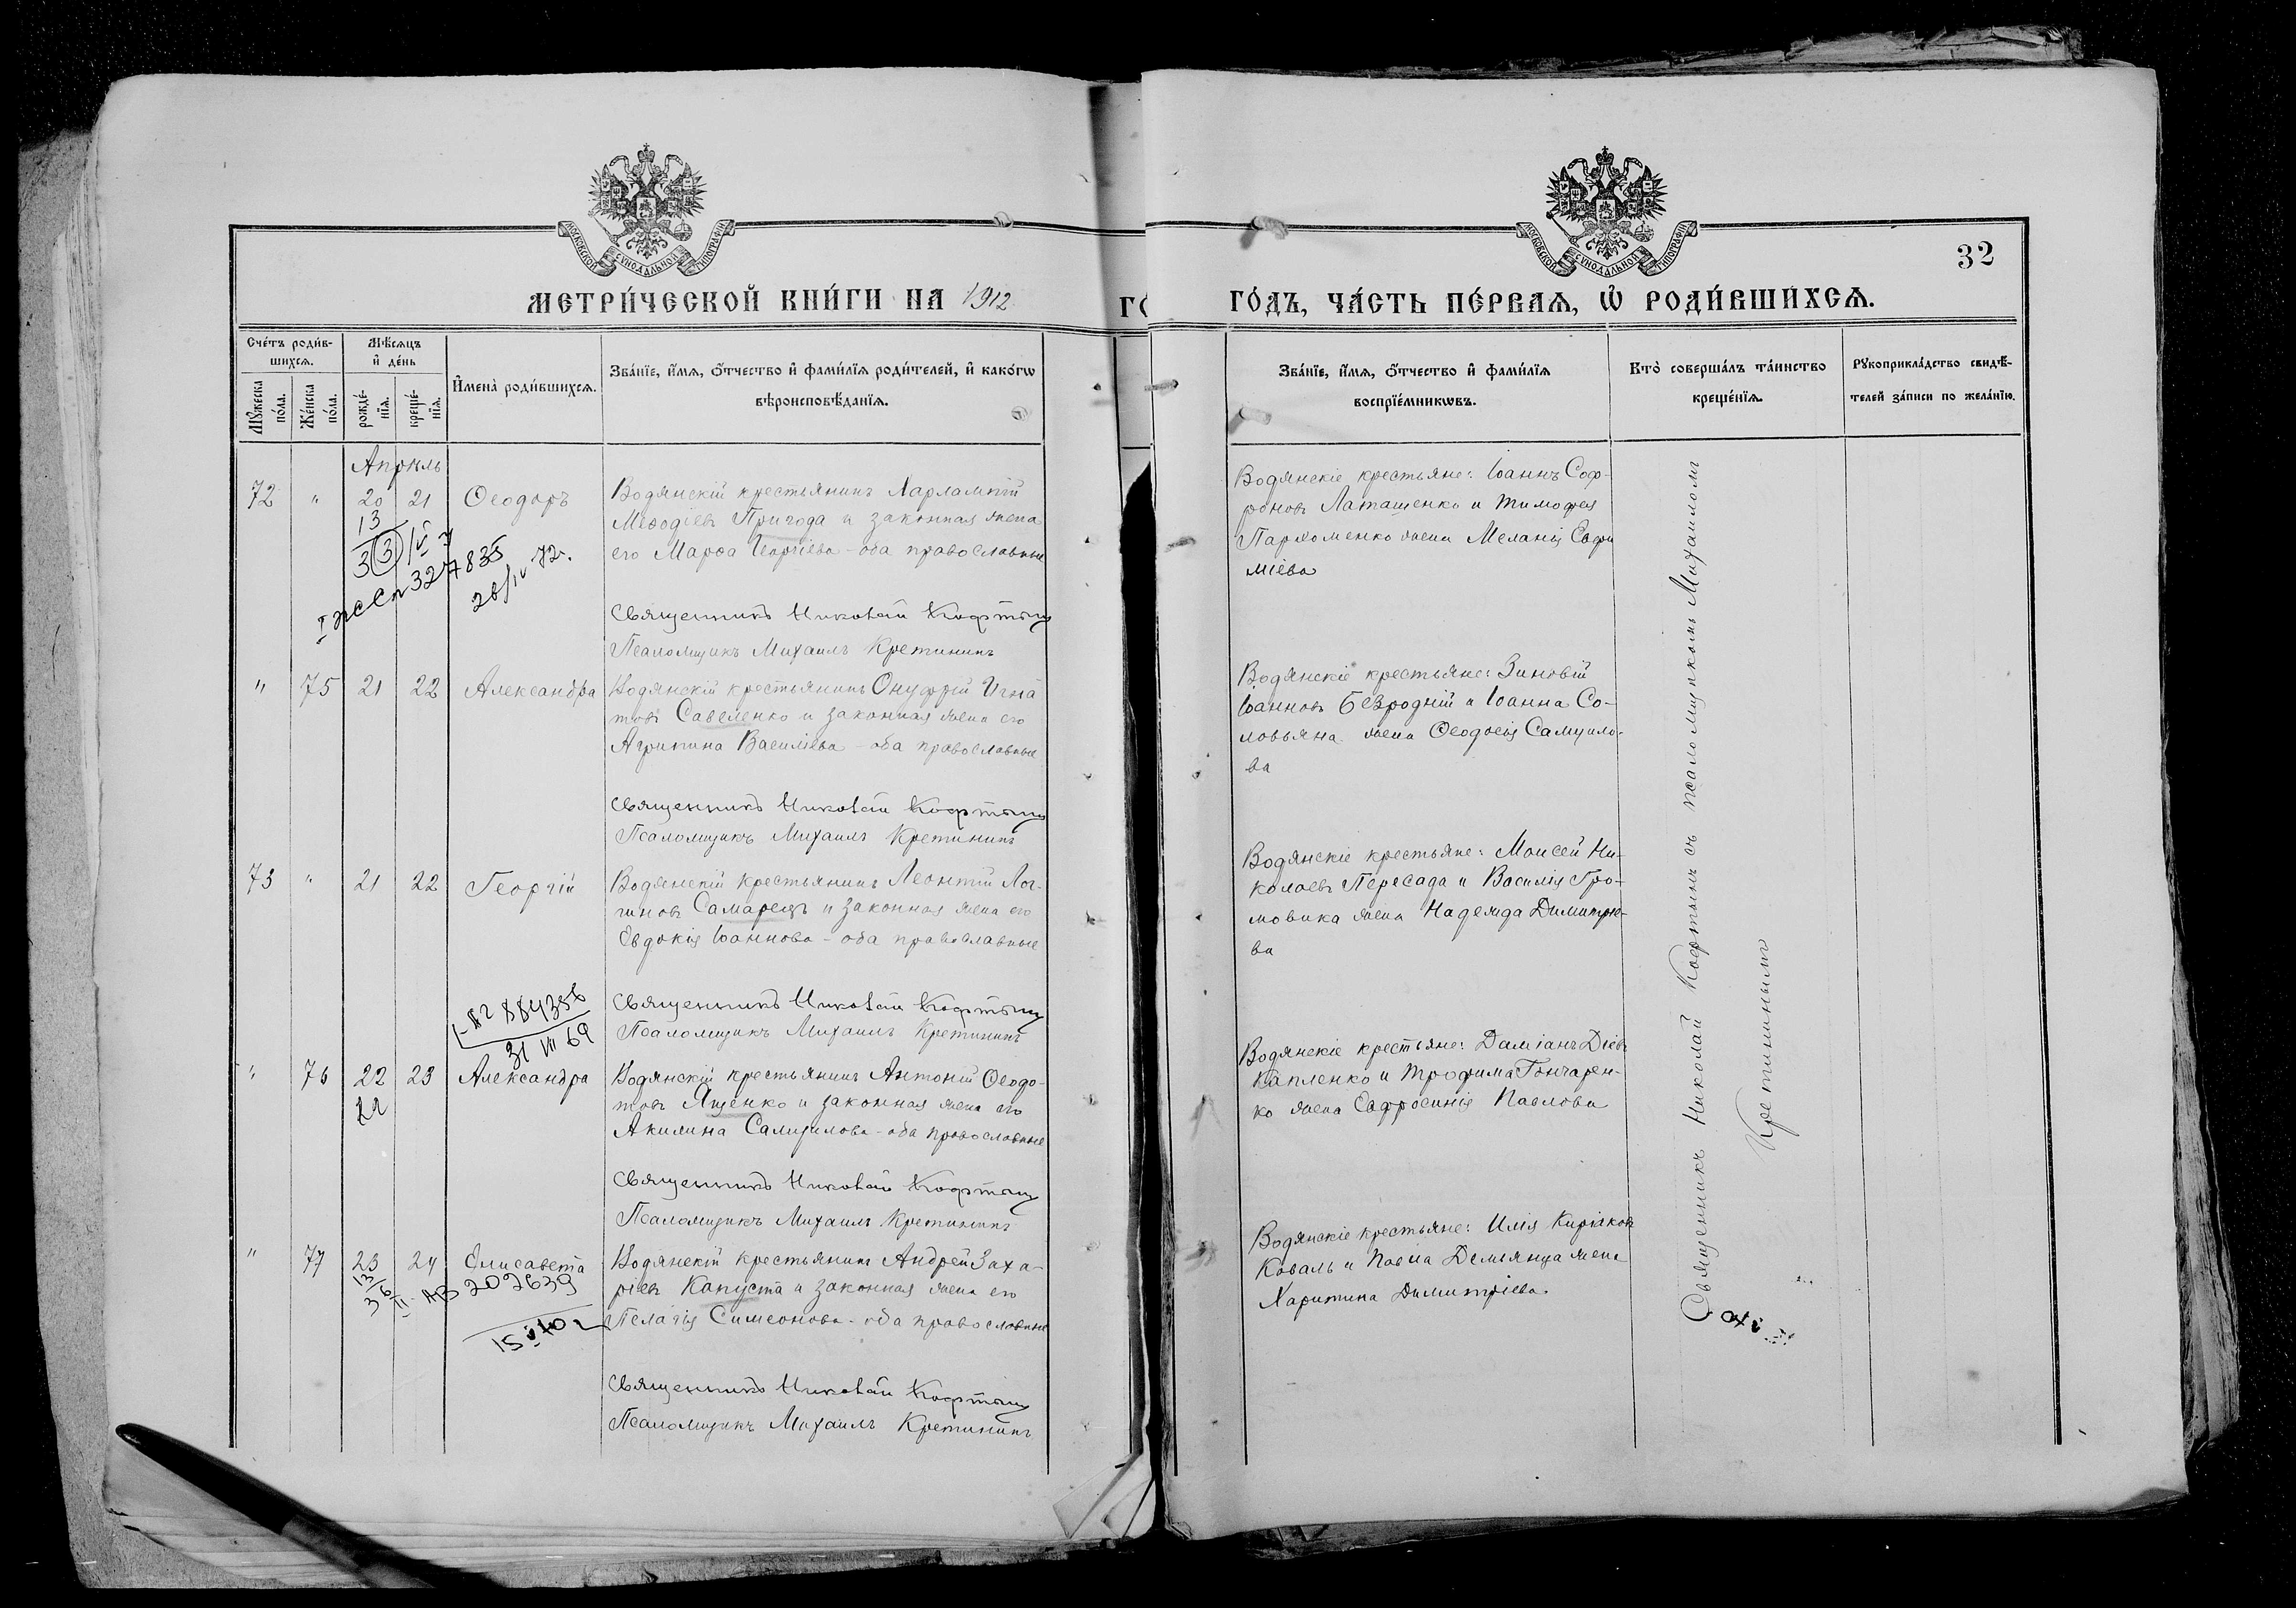 МОСКОВСКОЙ СѴНОДАЛЬНОЙ ТИПОГРАФІИ
МЕТРИ́ЧЕСКОЙ КНИ́ГИ НА 1912
ГО
Сче́тъ роди́в-
шихсѧ.
Мꙋ́жеска
по́ла.
Же́нска
по́ла.
Мѣ́сѧцъ
и҆ де́нь
рожде́-
нїѧ.
креще́-
нїѧ.
И҆мена̀ роди́вшихсѧ.
Зва́нїе, и҆́мѧ, ѻ҆́тчество и҆ фами́лїѧ роди́телей, и҆ како́гѡ
вѣроисповѣ́данїѧ.
Апрѣль
72 " 20 21 Ѳеодоръ
Водянскій крестьянинъ Харлампій
Меѳодіевъ Пригода и законная жена
его Марѳа Георгіева - оба православные
13
3 3 IV
327835
26/IV 72.
Священникъ Николай Кофтынъ
Псаломщикъ Михаилъ Кретининъ
" 75 21 22 Александра
Водянскій крестьянинъ Онуфрій Игна
товъ Савеленко и законная жена его
Агрипина Василіева - оба православные
Священникъ Николай Кофтынъ
Псаломщикъ Михаилъ Кретининъ
73 " 21 22 Георгій
Водянскій крестьянинъ Леонтій Лог-
гиновъ Самарецъ и законная жена его
Евдокія Іоаннова - оба православные
884356
31 VII 69
Священникъ Николай Кофтынъ
Псаломщикъ Михаилъ Кретининъ
" 76 22 23 Александра
22
Водянскій крестьянинъ Антоній Ѳеодо-
товъ Ященко и законная жена его
Акилина Самуилова - оба православные
Священникъ Николай Кофтынъ
Псаломщикъ Михаилъ Кретининъ
" 77 23 24 Елисавета
АВ 202639
Водянскій крестьянинъ Андрей Заха-
ріевъ Капуста и законная жена его
Пелагія Симеонова - оба православные
Священникъ Николай Кофтынъ
Псаломщикъ Михаилъ Кретининъ
МОСКОВСКОЙ СѴНОДАЛЬНОЙ ТИПОГРАФІИ
32
ГО́ДЪ, ЧА́СТЬ ПЕ́РВАѦ, Ѡ҆ РОДИ́ВШИХСѦ.
Зва́нїе, и҆́мѧ, ѻ҆́тчество и҆ фами́лїѧ
воспрїе́мникѡвъ.
Кто̀ соверша́лъ та́инство
креще́нїѧ.
Рꙋкоприкла́дство свидѣ́-
телей за́писи по жела́нїю.
Водянскіе крестьяне: Іоаннъ Соф-
роновъ Латашенко и Тимофея
Пархоменко жена Меланія Евфи
міева
Водянскіе крестьяне: Зиновій
Іоанновъ Безродній и Іоанна Со-
ловьяна жена Ѳеодосія Самуило-
ва
Водянскіе крестьяне: Моисей Ни-
колаевъ Пересада и Василія Гро-
мовика жена Надежда Димитріе-
ва
Водянскіе крестьяне: Даміанъ Діевъ
Капленко и Трофима Гончарен-
ко жена Евфросинія Павлова
Водянскіе крестьяне: Илія Киріаковъ
Коваль и Павла Демьянца жена
Харитина Димитріева
Священникъ Николай Кофтынъ съ псаломщикомъ Михаиломъ
Кретининымъ